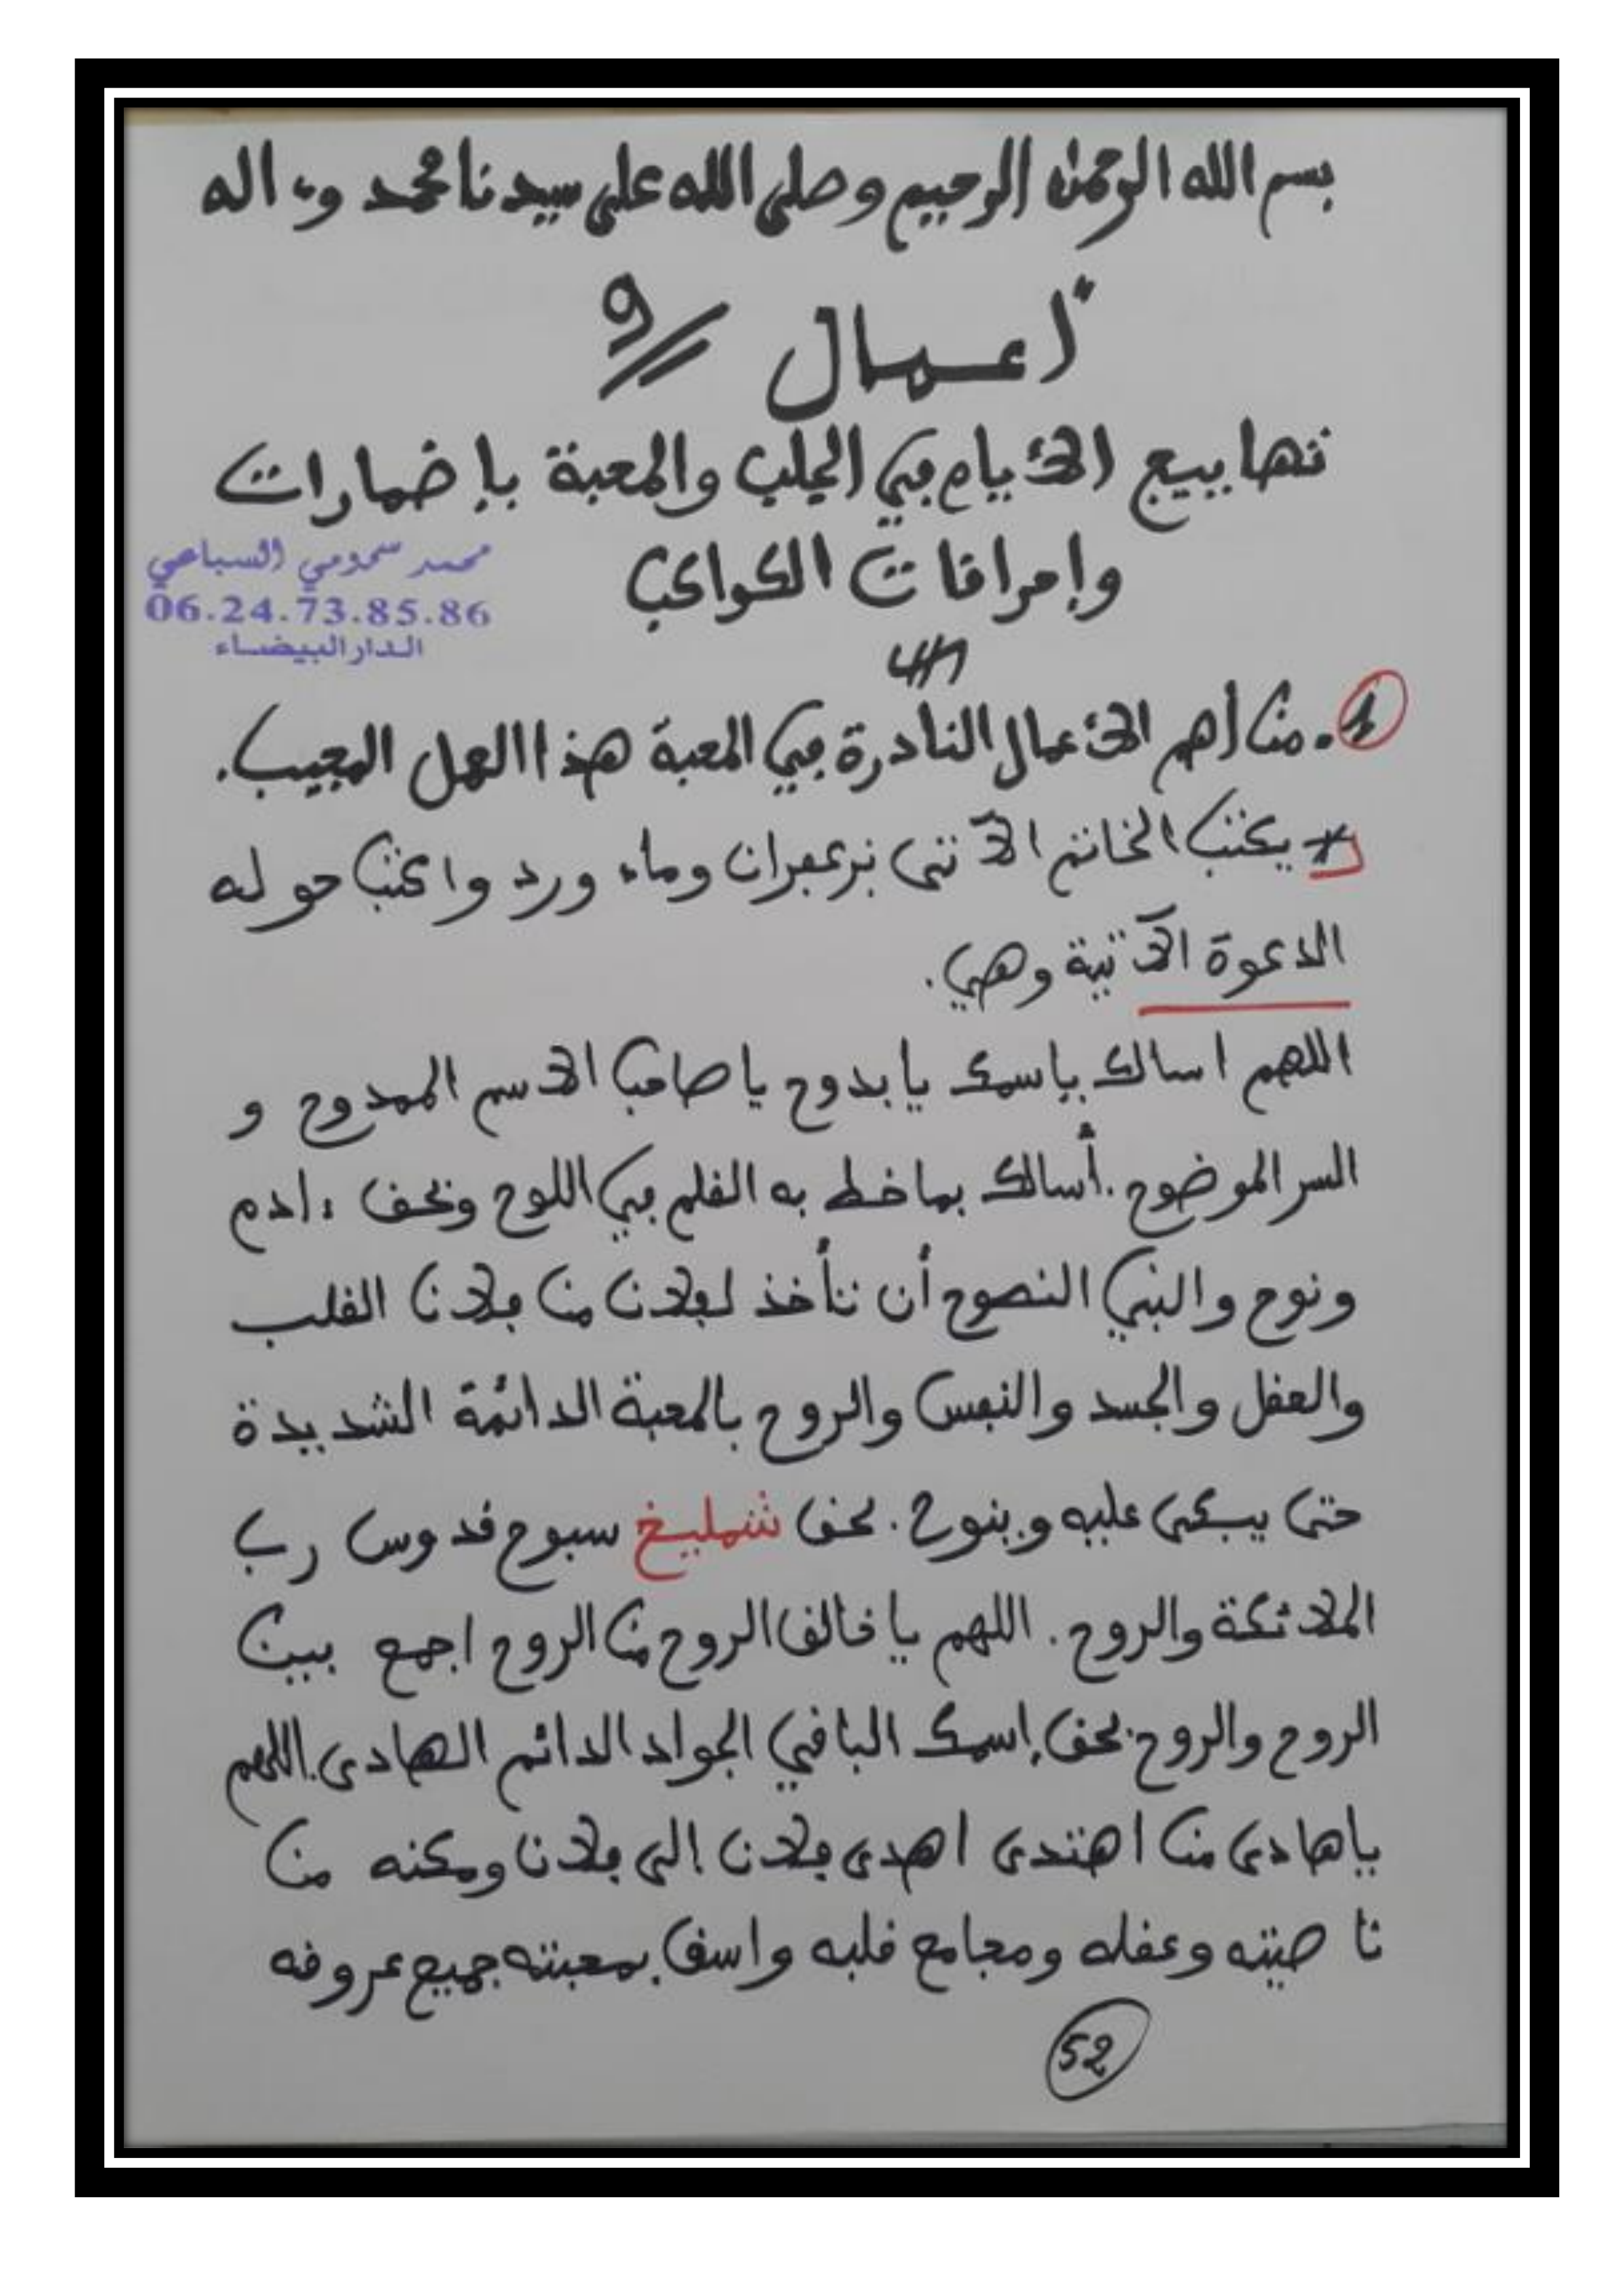 بسم الله الرحمن الرحيم وصلى الله على سيدنا محمد وءاله
أعمال و
تهاييج الأيام في الجلب والمحبة بإضمارات
وإحراقات الكواكب
محمد سحمومي السباعي
06.24.73.85.86
الدار البيضاء
1. من أهم الأعمال النادرة في المحبة هذا العمل العجيب.
يكتب الخاتم الآتي بزعفران وماء ورد واكتب حوله
الدعوة الآتية وهي.
اللهم اسالك باسمك يا بدوح يا صاحب الاسم الممدوح و
السر الموضوح. أسالك بما خط به القلم في اللوح وبحق ءادم
ونوح والنبي النصوح أن تأخذ لفلان من فلان القلب
والعقل والجسد والنفس والروح بالمحبة الدائمة الشديدة
حتى يبكى عليه وينوح. بحق شمليخ سبوح قدوس رب
الملائكة والروح. اللهم يا خالق الروح من الروح اجمع بين
الروح والروح. بحق إسمك الباقي الجواد الدائم الهادى. اللهم
ياهادى من اهتدى اهدى فلان الى فلان ومكنه من
ناصيته وعقله ومجامع قلبه واسق بمحبته جميع عروقه
52